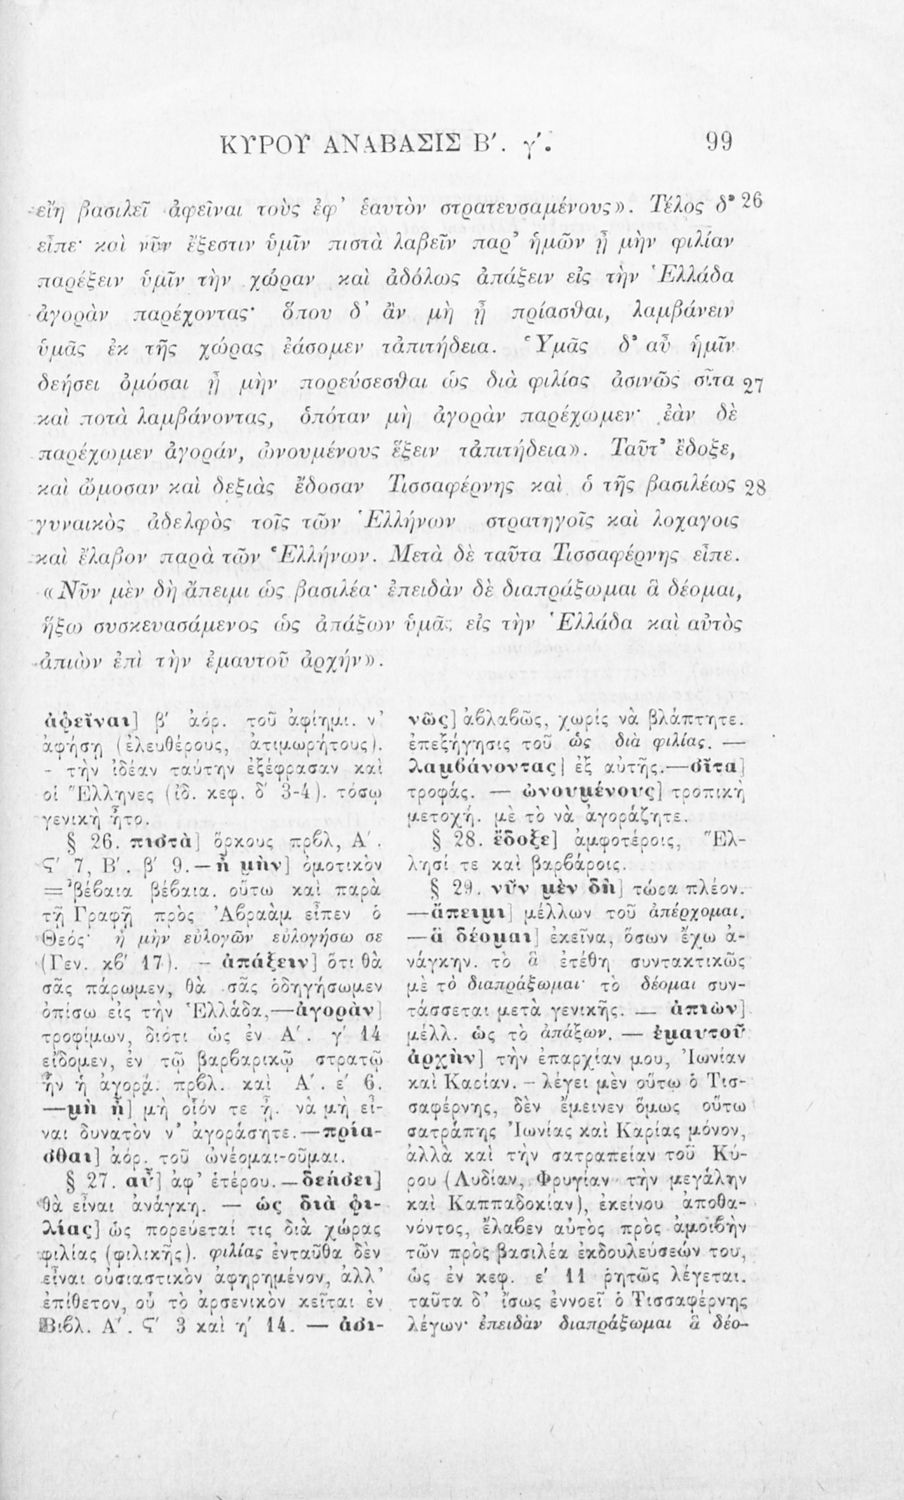 ΚΥΡΟΥ ΑΝΑΒΑΣΙΣ Β΄. γ΄. 99
εἴη βασιλεῖ ἀφεῖναι τοὺς ἐφ’ ἑαυτὸν στρατευσαμένους». Τέλος δ’ 26
εἶπε· καὶ νῦν ἔξεστιν ὑμῖν πιστὰ λαβεῖν παρ’ ἡμῶν ἦ μὴν φιλίαν
παρέξειν ὑμῖν τὴν χώραν καὶ ἀδόλως ἀπάξειν εἰς τὴν Ἑλλάδα
ἀγορὰν παρέχοντας· ὅπου δ’ ἂν μὴ ᾖ πρίασθαι, λαμβάνειν
ὑμᾶς ἐκ τῆς χώρας ἐάσομεν τἀπιτήδεια. Ὑμᾶς δ’ αὖ ἡμῖν
δεήσει ὀμόσαι ἦ μὴν πορεύσεσθαι ὡς διὰ φιλίας ἀσινῶς σῖτα 27
καὶ ποτὰ λαμβάνοντας, ὁπόταν μὴ ἀγορὰν παρέχωμεν· ἐὰν δὲ
παρέχωμεν ἀγοράν, ὠνουμένους ἕξειν τἀπιτήδεια». Ταῦτ’ ἔδοξε,
καὶ ὤμοσαν καὶ δεξιὰς ἔδοσαν Τισσαφέρνης καὶ ὁ τῆς βασιλέως 28
γυναικὸς ἀδελφὸς τοῖς τῶν Ἑλλήνων στρατηγοῖς καὶ λοχαγοις
καὶ ἔλαβον παρὰ τῶν Ἑλλήνων. Μετὰ δὲ ταῦτα Τισσαφέρνης εἶπε.
«Νῦν μὲν δὴ ἄπειμι ὡς βασιλέα· ἐπειδὰν δὲ διαπράξωμαι ἃ δέομαι,
ἥξω συσκευασάμενος ὡς ἀπάξων ὑμᾶς εἰς τὴν Ἑλλάδα καὶ αὐτὸς
ἀπιὼν ἐπὶ τὴν ἐμαυτοῦ ἀρχήν».
ἀφεῖναι] β΄ ἀόρ. τοῦ ἀφίημι. ν’
ἀφήσῃ (ἐλευθέρους, ἀτιμωρήτους).
- τὴν ἰδέαν ταύτην ἐξέφρασαν καὶ
οἱ Ἕλληνες (ἰδ. κεφ. δ΄ 3-4). τόσῳ
γενικὴ ἦτο.
§ 26. πιστὰ] ὅρκους πρβλ, Α΄.
Ϛ΄ 7, Β΄. β΄ 9.—ἦ μὴν] ὁμοτικὸν
=βέβαια βέβαια. οὕτω καὶ παρὰ
τῇ Γραφῇ πρὸς Ἀβραὰμ εἶπεν ὁ
Θεός· ἦ μὴν εὐλογῶν εὐλογήσω σε
(Γεν. κβ΄ 17). — ἀπάξειν] ὅτι θὰ
σᾶς πάρωμεν, θὰ σᾶς ὁδηγήσωμεν
ὀπίσω εἰς τὴν Ἑλλάδα,—ἀγορὰν]
τροφίμων, διότι ὡς ἐν Α΄. γ΄ 14
εἴδομεν, ἐν τῷ βαρβαρικῷ στρατῷ
ἦν ἡ ἀγορά. πρβλ. καὶ Α΄. ε΄ 6.
—μὴ ᾖ] μὴ οἷόν τε ᾖ. νὰ μὴ εἶ-
ναι δυνατὸν ν’ ἀγοράσητε.—πρία-
σθαι] ἀόρ. τοῦ ὠνέομαι-οῦμαι.
§ 27. αὖ] ἀφ’ ἑτέρου.—δεήσει]
θὰ εἶναι ἀνάγκη. — ὡς διὰ φι-
λίας] ὡς πορεύεταί τις διὰ χώρας
φιλίας (φιλικῆς). φιλίας ἐνταῦθα δὲν
εἶναι οὐσιαστικὸν ἀφηρημένον, ἀλλ’
ἐπίθετον, οὗ τὸ ἀρσενικὸν κεῖται ἐν
Βιβλ. Α΄. Ϛ΄ 3 καὶ η΄ 14. — ἀσι-
νῶς] ἀβλαβῶς, χωρὶς νὰ βλάπτητε.
ἐπεξήγησις τοῦ ὡς διὰ φιλίας. —
λαμβάνοντας] ἐξ αὐτῆς.—σῖτα]
τροφάς. — ὠνουμένους] τροπικὴ
μετοχή. μὲ τὸ νὰ ἀγοράζητε.
§ 28. ἔδοξε] ἀμφοτέροις, Ἕλ-
λησί τε καὶ βαρβάροις.
§ 29. νῦν μὲν δὴ] τώρα πλέον.
—ἄπειμι] μέλλων τοῦ ἀπέρχομαι.
—ἃ δέομαι] ἐκεῖνα, ὅσων ἔχω ἀ-
νάγκην. τὸ ἃ ἐτέθη συντακτικῶς
μὲ τὸ διαπράξωμαι· τὸ δέομαι συν-
τάσσεται μετὰ γενικῆς. — ἀπιὼν]
μέλλ. ὡς τὸ ἀπάξων. — ἐμαυτοῦ
ἀρχὴν] τὴν ἐπαρχίαν μου, Ἰωνίαν
καὶ Καρίαν. - λέγει μὲν οὕτω ὁ Τισ-
σαφέρνης, δὲν ἔμεινεν ὅμως οὕτω
σατράπης Ἰωνίας καὶ Καρίας μόνον,
ἀλλὰ καὶ τὴν σατραπείαν τοῦ Κύ-
ρου (Λυδίαν, Φρυγίαν τὴν μεγάλην
καὶ Καππαδοκίαν), ἐκείνου ἀποθα-
νόντος, ἔλαβεν αὐτὸς πρὸς ἀμοιβὴν
τῶν πρὸς βασιλέα ἐκδουλεύσεών του,
ὡς ἐν κεφ. ε΄ 11 ῥητῶς λέγεται.
ταῦτα δ’ ἴσως ἐννοεῖ ὁ Τισσαφέρνης
λέγων· ἐπειδὰν διαπράξωμαι ἃ δέο-